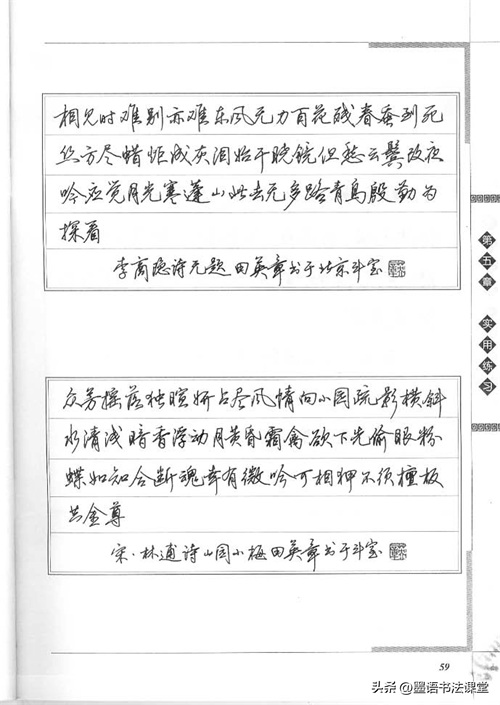 相见时难别亦难东风无力百花残春蚕到死
丝方尽蜡炬成灰泪始干晓镜但愁云鬓改夜
吟应觉月光寒蓬山此去无多路青鸟殷勤为
探看
李商隐诗无题 田英章书于北京斗室
第五章 实用练习
众芳摇落独暄妍占尽风情向小园疏影横斜
水清浅暗香浮动月黄昏霜禽欲下先偷眼粉
蝶如知合断魂幸有微吟可相狎不须檀板
共金尊
宋·林逋诗山园小梅田英章书于斗室
59
头条 @墨语书法课堂